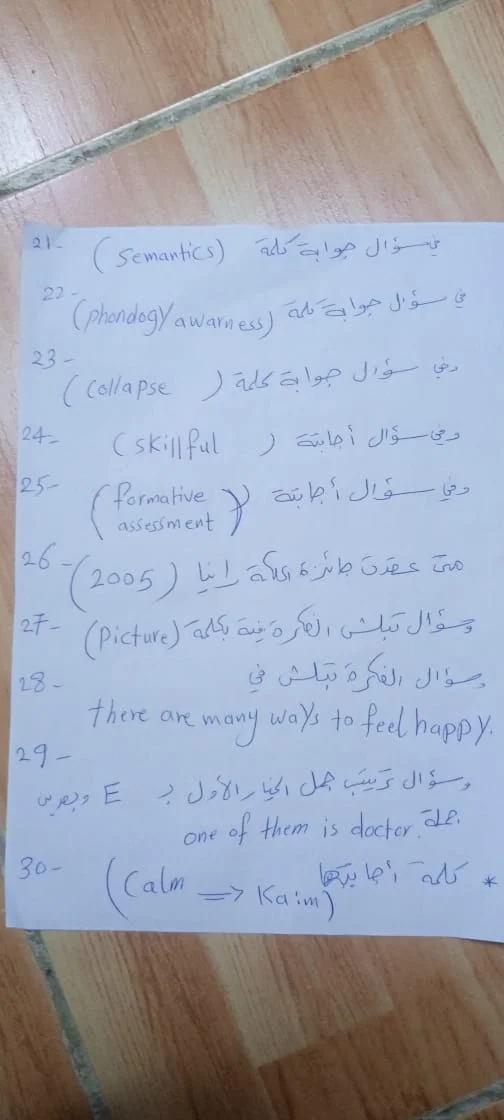 21- في سؤال جوابة كلمة (Semantics)
22- في سؤال جوابة كلمة (phondogy awarness)
23- وفي سؤال جوابة كلمة (Collapse)
24- وفي سؤال أجابتة (skillful)
25- وفي سؤال أجابتة (formative
assessment)
26- متى عقدت جائزة الملكة رانيا (2005)
27- وسؤال تبلش الفكرة فية بكلمة (Picture)
28- وسؤال الفكرة تبلش في
there are many ways to feel happy.
29- وسؤال ترتيب جمل الخيار الأول بـ E وبعدين
جملة one of them is doctor.
30- * كلمة أجابتها (Calm => Kaim)